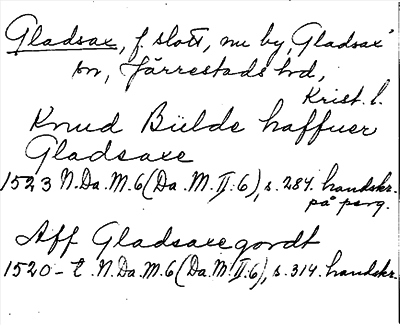 Gladsax, f. slott, nu by, Gladsax'
sn, Järrestads hd,
Krist. l.
Knud Bielde haffuer
Gladsaxe
1523 N.Da.M.6 (Da.M.II.6), s. 284. handskr.
på perg.
Aff Gladsaxegordt
1520-t. N.Da.M.6 (Da.M.II.6), s. 314. handskr.